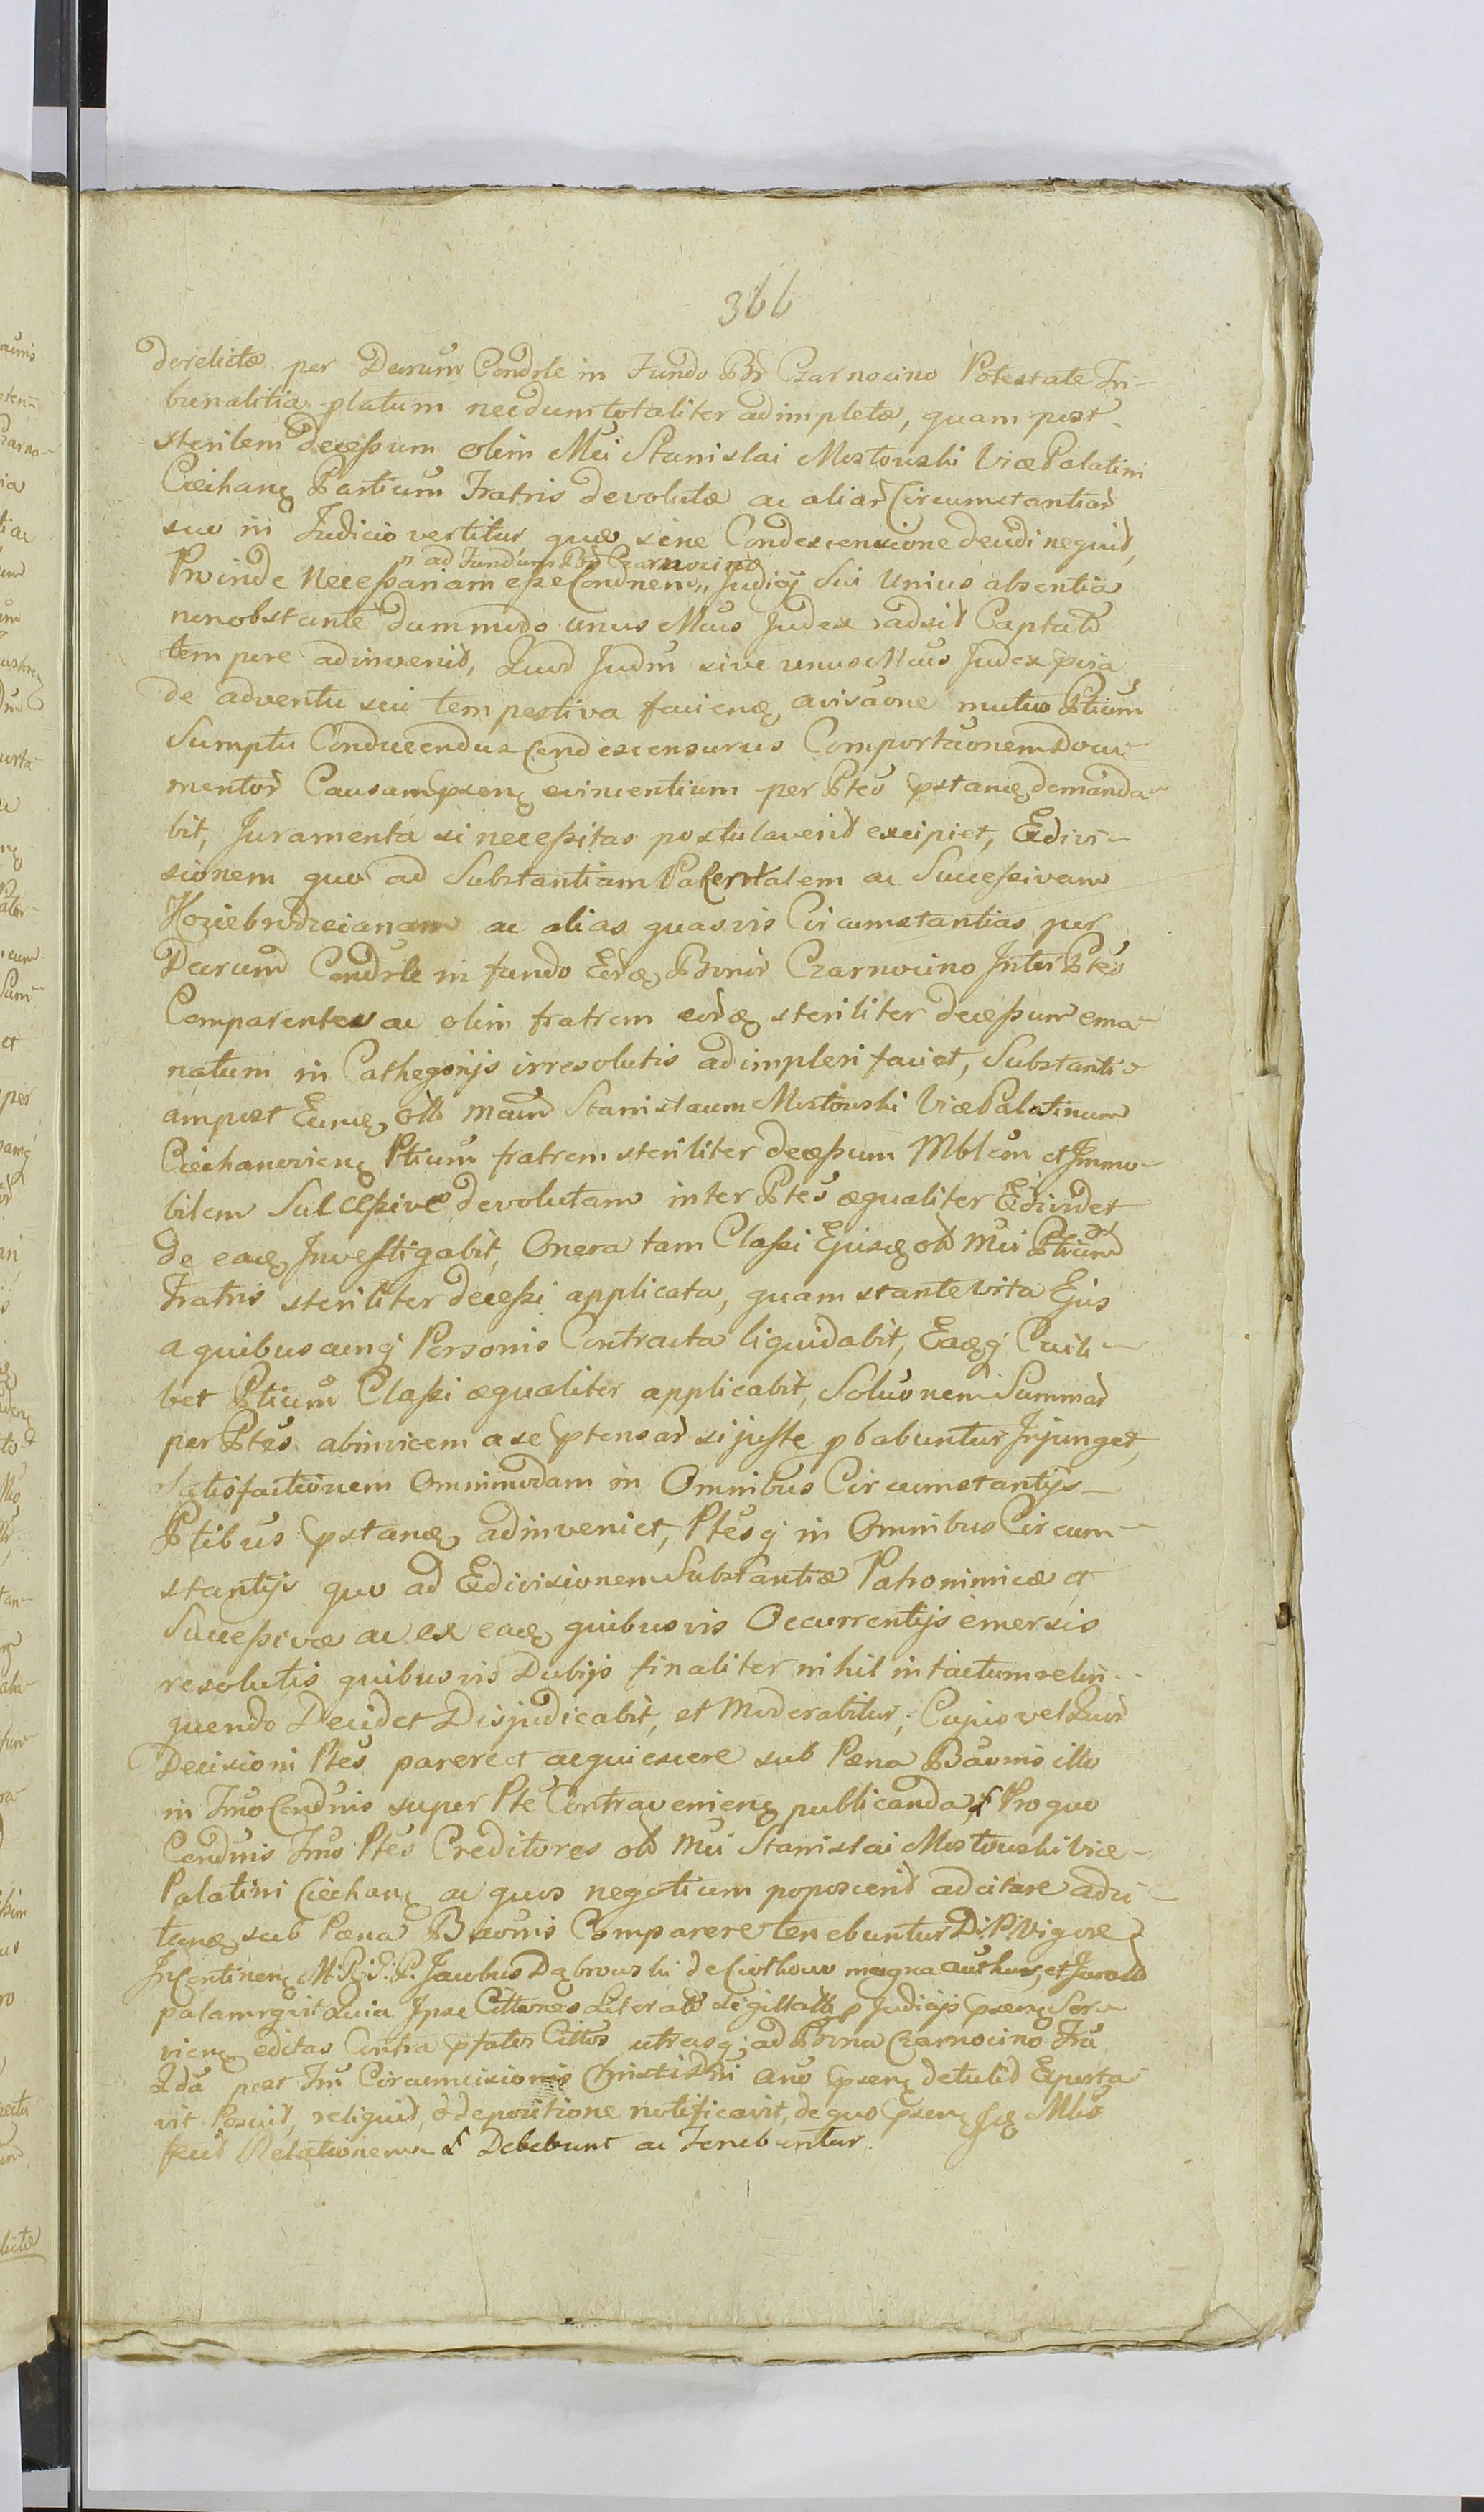 366
derelictæ per Decrum Condrle in Fundo Br Czarnocino Potestate Tri-
bunalitia platum necdum totaliter adimpletæ, quam post
sterilem decessum olim Mei Stanislai Mostowski Vice Palatini
Ciechanꝫ Partium Fratris devolutæ ac aliar Circumstantiar
suo in Judicio vertitur quæ sine Condescensione decidi nequid,
" ad Fundum Br Czarnocino
Proinde Necessariam esse Condnem " Judicij Sui Unius absentia
nonobstante dummodo unus Mcus Judex adsit Captato
tempore adinvenit, Quod Judm sive unus Mcus Judex pvia
de adventu sui tempestiva facienꝫ avisaone mutuo Ptium
Sumptu Conducendus Condescensurus Comportaonem Docu-
mentor Causam psenꝫ evincentium per Ptes pstanꝫ demanda-
bit, Juramenta si necessitas postulaverit excipiet, Edivi-
sionem quo ad Substantiam Paternalem ac Successivam
Koziebrodzcianam ac alias quasvis Circumstantias per
Decrum Condrle in fundo Eorꝫ Bonor Czarnocino Inter Ptes
Comparentes ac olim fratrem eorꝫ steriliter decessum ema-
natum in Cathegorijs irresolutis adimpleri faciet, Substanti-
am post Eunꝫ olb Mcum Stanislaum Mostowski Vice Palatinum
Ciechanovienꝫ Ptium fratrem steriliter decessum Mblem et Immo-
bilem Successive devolutam inter Ptes æqualiter Edividet
de eaꝫ Investigabit, Onera tam Classi Ejusꝫ olb Mci Ptium
Fratris steriliter decessi applicata, quam stante vita Ejus
a quibuscunq Personis Contracta liquidabit, Eaꝫq Cuili-
bet Ptium Classi æqualiter applicabit, Soluonem Summar
per Ptes abinvicem a se ptensar si juste pbabuntur Injunget,
Satisfactionem Omnimodam in Omnibus Circumstantijs
Ptibus pstanꝫ adinveniet, Ptesq in Omnibus Circum-
stantijs quo ad Edivisionem Substantiæ Patronimicæ et
Successivæ ac ex eaꝫ quibusvis Occurrentijs emersis
resolutis quibusvis Dubijs finaliter nihil intactum relin-
quendo Decidet Disjudicabit, et Moderabitur; Cujus vel Quor
Decisioni Ptes parere et acquiescere sub Pæna Baonis illo
in Tmo Condnis super Pte Contravenienꝫ publicanda, & Pro quo
Condnis Tmo Ptes Creditores olb Mci Stanislai Mostowski Vice-
Palatini Ciechanꝫ ac quos negotium poposcerit adcitare adci-
tanꝫ sub Pæna Baonis Comparere tenebuntur D: P: Vigore
In Continenꝫ M: R: T: P. Jacobus Dąbrowski de Ciothowo magna authus, et Juratb
palam rgvit Quia Ipse Citaones Literatb Sigillatb p Judicijs psenꝫ Ser-
vienꝫ editas Contra pfatos Cittos utrasq; ad Bona Czarnocino Fra
2da post Fm Circumcisionis Christi Dni Ano psenꝫ detulit Exporta-
vit Posuit, reliquid, & depositione notificavit, de quo psenꝫ Mlus
fecit Relationem & Debebunt ac Tenebuntur